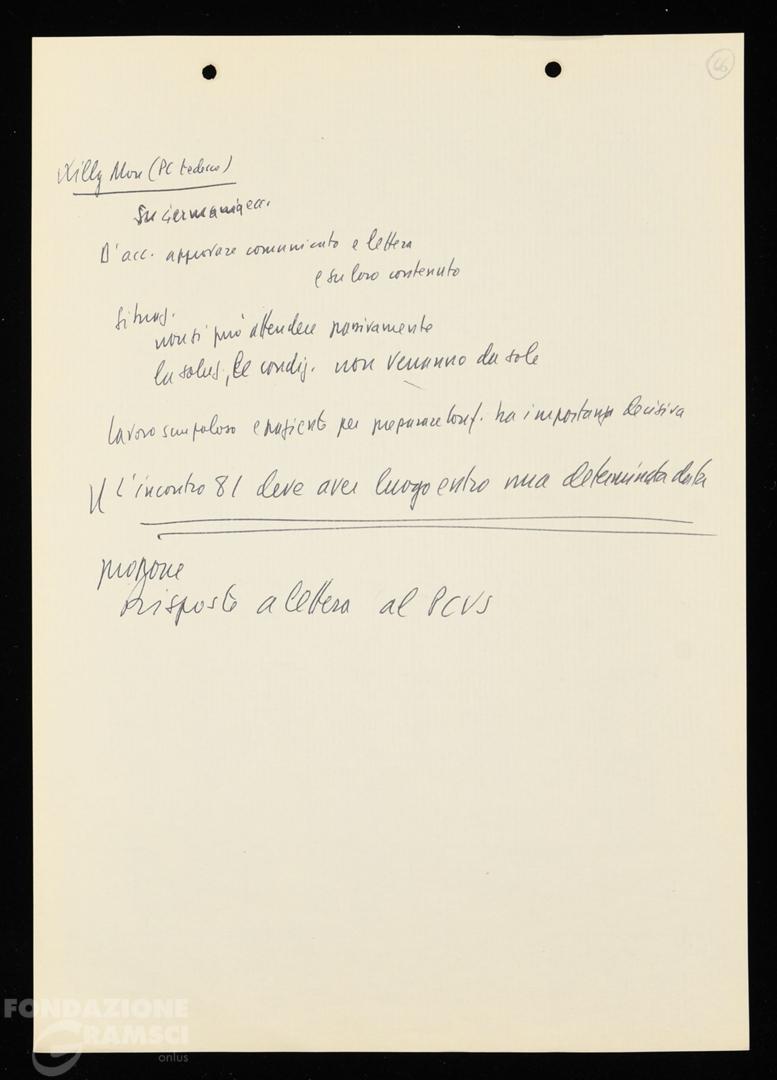 66
Willy Mon (PC tedesco)
Su Germania ecc.
D'acc. approvare comunicato e lettera
e su loro contenuto
Situaz.
non si può attendere passivamente
la soluz., le condiz. non verranno da sole
Lavoro scrupoloso e paziente per preparare Conf. ha importanza decisiva
L'incontro 81 deve aver luogo entro una determinata data
propone
risposte a lettera al PCUS
FONDAZIONE
GRAMSCI
onlus